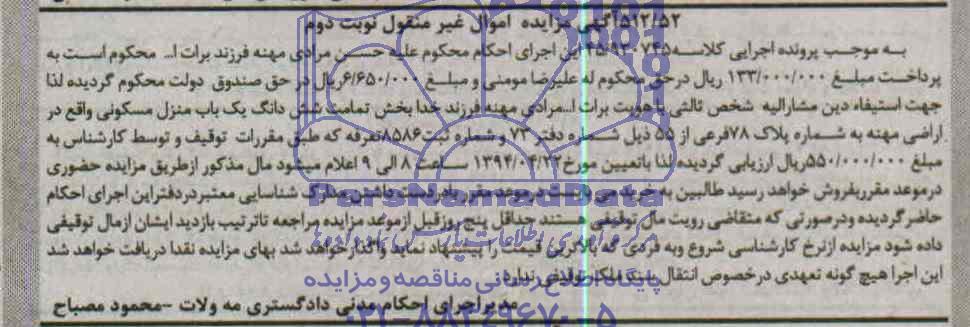 ۵۱۲/۵۲ آگهی مزایده اموال غیر منقول نوبت دوم
به موجب پرونده اجرایی کلاسه ۴۵/۹۳۰۷۴۵ این اجرای احکام محکوم علیه حسن مرادی مهنه فرزند برات ا... محکوم است به
پرداخت مبلغ ۱۳۳/۰۰۰/۰۰۰ ریال درحق محکوم له علیرضا مومنی و مبلغ ۶/۶۵۰/۰۰۰ریال در حق صندوق دولت محکوم گردیده لذا
جهت استیفاء دین مشارالیه شخص ثالثی باهویت برات ا...مرادی مهنه فرزند خدا بخش تمامیت شش دانگ یک باب منزل مسکونی واقع در
اراضی مهنه به شماره پلاک ۷۸فرعی از ۵۵ ذیل شماره دفتر ۷۳ و شماره ثبت ۸۵۸۶ که طبق مقررات توقیف و توسط کارشناس به
مبلغ ۵۵۰/۰۰۰/۰۰۰ریال ارزیابی گردیده لذا باتعیین مورخ ۱۳۹۴/۰۴/۲۲ ساعت ۸ الی ۹ اعلام میشود مال مذکور ازطریق مزایده حضوری
درموعد مقرربفروش خواهد رسید طالبین به خرید می بایست درموعد مقرر بادردست داشتن مدارک شناسایی معتبردردفتراین اجرای احکام
حاضرگردیده ودرصورتی که متقاضی رویت مال توقیفی هستند حداقل پنج روزقبل ازموعد مزایده مراجعه تاترتیب بازدید ایشان ازمال توقیفی
داده شود مزایده ازنرخ کارشناسی شروع وبه فردی که بالاترین قیمت را پیشنهاد نماید واگذارخواهد شد بهای مزایده نقدا دریافت خواهد شد
این اجرا هیچ گونه تعهدی درخصوص انتقال سند ملک توقیفی ندارد
مدیراجرای احکام مدنی دادگستری مه ولات -محمود مصباح
ParsNamadData
پایگاه اطلاع رسانی مناقصه و مزایده
۰۲۱-۸۸۳۴۹۶۷۰-۵